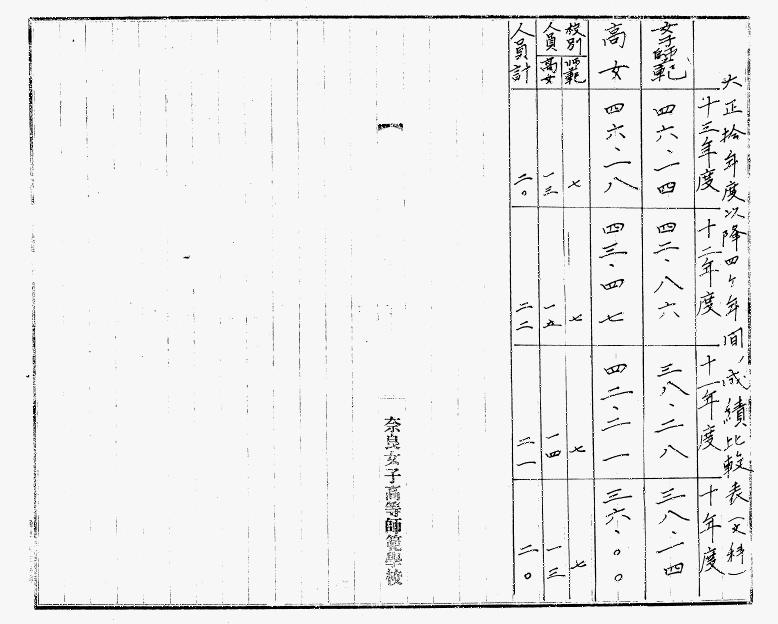 大正拾年度以降四ヶ年間ノ成績比較表（文科）
十三年度
十二年度
十一年度
十年度
女子師範
四六、一四
四二、八六
三八、二八
三八、一四
高女
四六、一八
四三、四七
四二、二一
三六、〇〇
校別人員
師範
七
七
七
七
高女
一三
一五
一四
一三
人員計
二〇
二二
二一
二〇
奈良女子高等師範學校